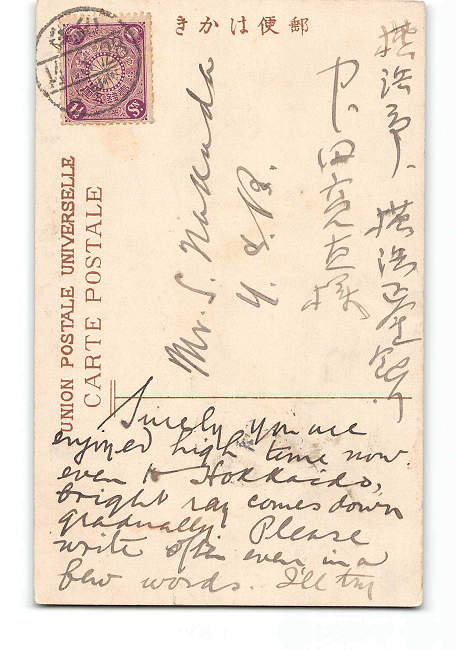 郵便はかき
横浜市、横浜正金銀行
中田直様
Mr. S. Nakada
Y. S. B.
UNION POSTALE UNIVERSELLE
CARTE POSTALE
1½ Sn.
Surely you are
enjoyed high time now.
even Hokkaido,
bright ray comes down
gradually. Please
write often even in a
few words. I'll try